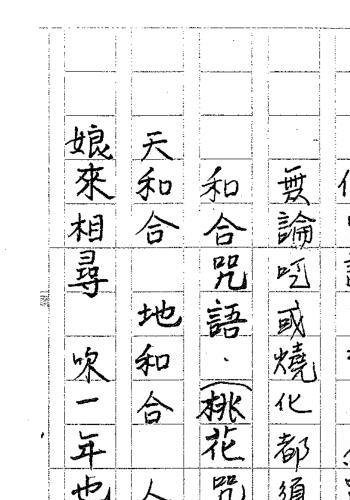 無論呵或燒化都須
和合咒語．（桃花咒
天和合　地和合　人
娘來相尋　吹一年也